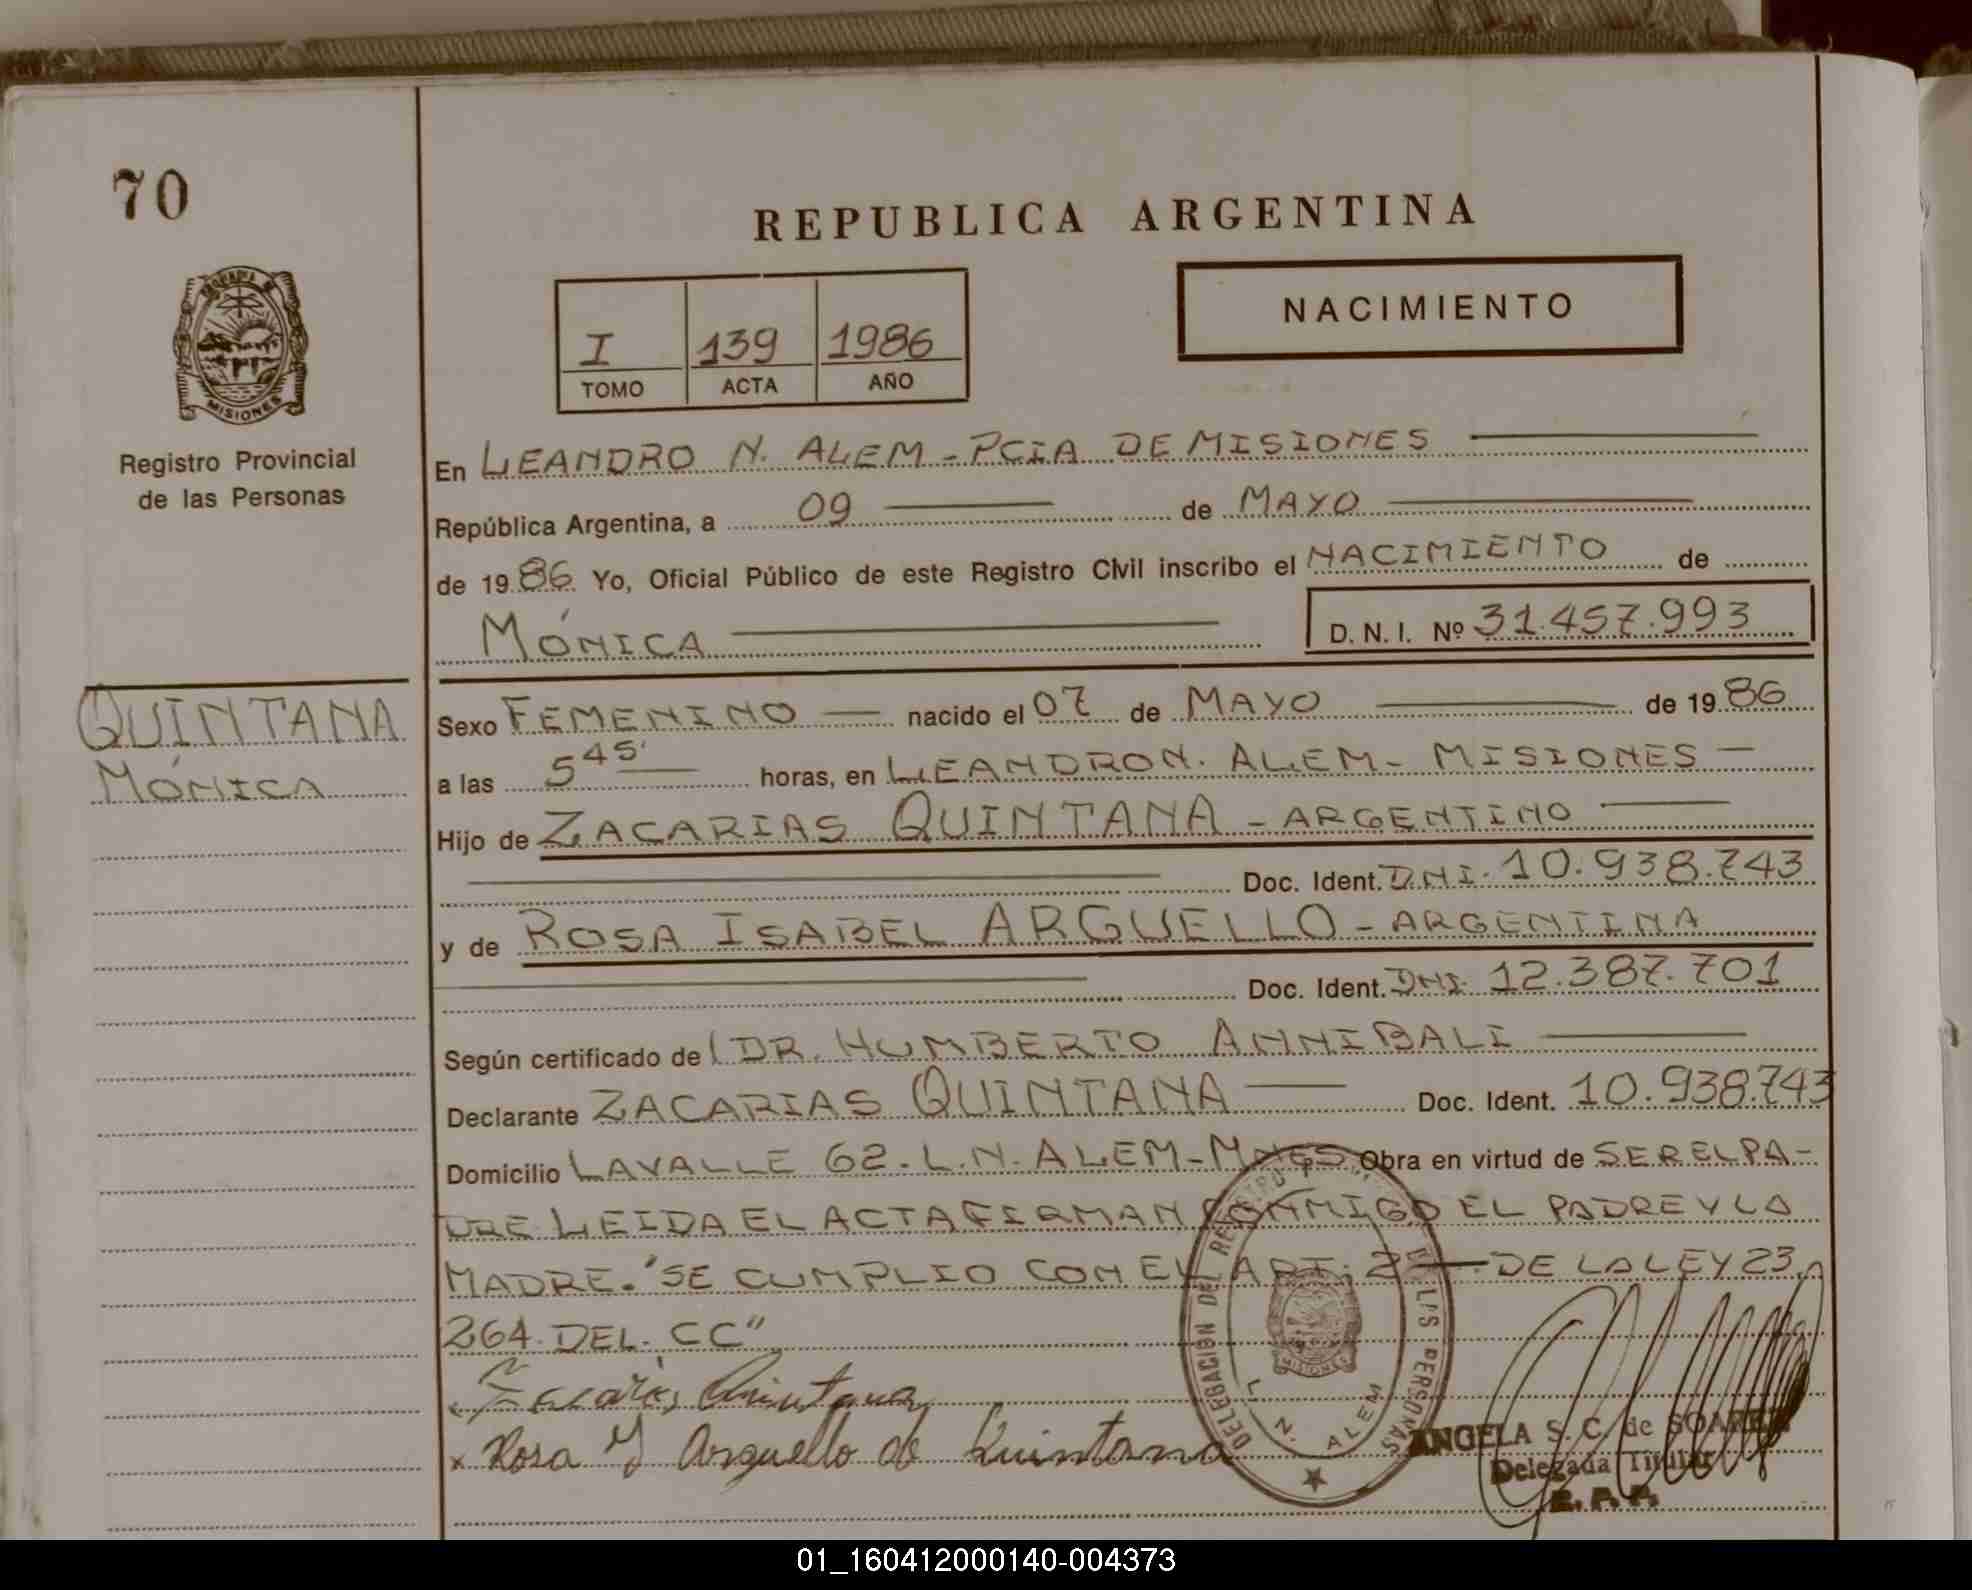 70
REPUBLICA ARGENTINA
NACIMIENTO
I 139 1986
TOMO ACTA AÑO
MISIONES
Registro Provincial
de las Personas
En LEANDRO N. ALEM - PCIA DE MISIONES
República Argentina, a 09 de MAYO
de 19 86 Yo, Oficial Público de este Registro Civil inscribo el NACIMIENTO de
MÓNICA D. N. I. Nº 31.457.993
QUINTANA
MÓNICA
Sexo FEMENINO nacido el 07 de MAYO de 19 86
a las 5 45' horas, en LEANDRO N. ALEM - MISIONES
Hijo de ZACARIAS QUINTANA - ARGENTINO
Doc. Ident. DNI. 10.938.743
y de ROSA ISABEL ARGUELLO - ARGENTINA
Doc. Ident. DNI. 12.387.701
Según certificado de DR. HUMBERTO ANNIBALI
Declarante ZACARIAS QUINTANA Doc. Ident. 10.938.743
Domicilio LAVALLE 62 - L.N. ALEM - MNES Obra en virtud de SER EL PA-
DRE LEIDA EL ACTA FIRMAN CONMIGO EL PADRE Y LA
MADRE. "SE CUMPLIO CON EL ART. 2 - DE LA LEY 23.
264. DEL. CC"
Zacarias Quintana
x Rosa I Arguello de Quintana
DELEGACION DEL REGISTRO DE LAS PERSONAS
MISIONES
L. N. ALEM
ANGELA S. C. de SOAREZ
Delegada Titular
01_160412000140-004373